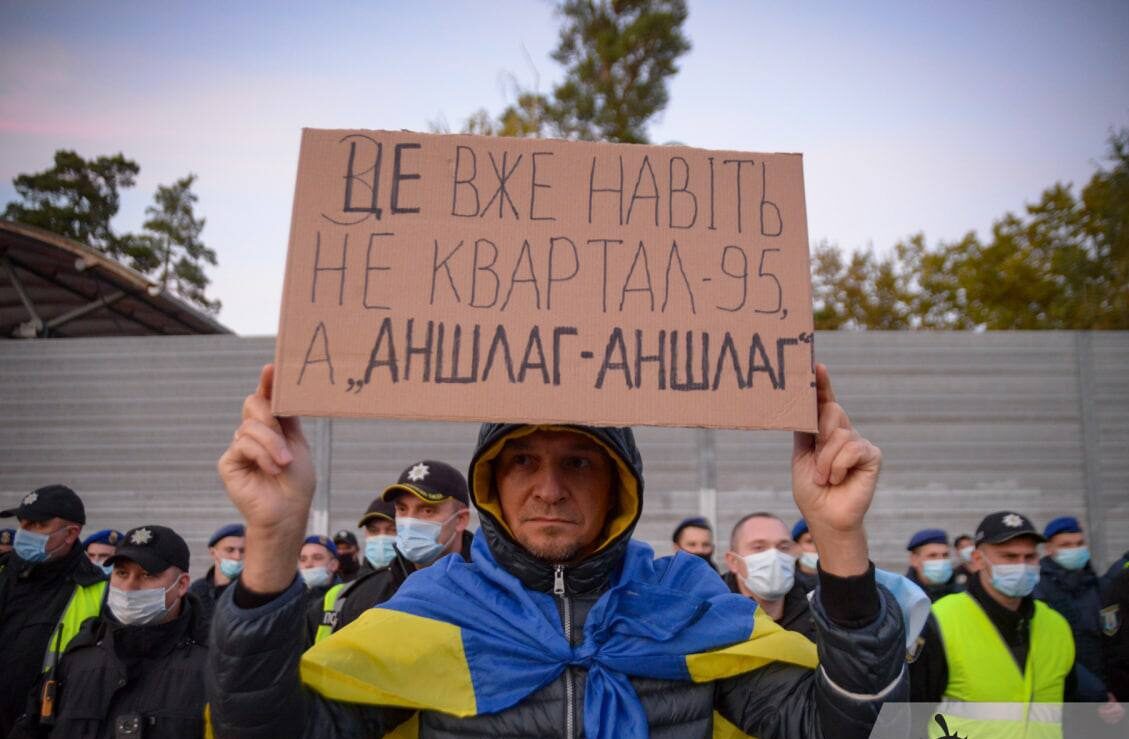 ЦЕ ВЖЕ НАВІТЬ
НЕ КВАРТАЛ-95,
А „АНШЛАГ-АНШЛАГ“!